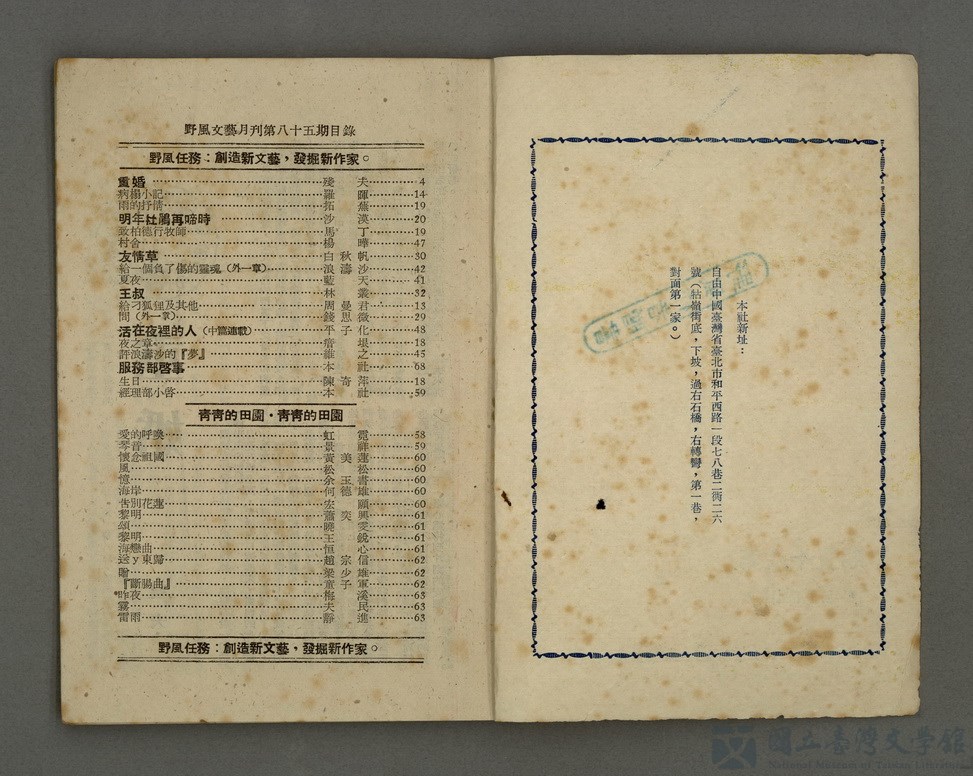 野風文藝月刊第八十五期目錄
野風任務：創造新文藝，發掘新作家。
重婚 殘夫 4
病榻小記 羅暉 14
雨的抒情 拓蕪 19
明年杜鵑再啼時 沙漠 20
致柏德行牧師 馬丁 19
村舍 楊曄 47
友情草 白秋帆 30
給一個負了傷的靈魂（外一章） 浪濤沙 42
夏夜 藍天 41
王叔 林叢 32
給刁狐狸及其他 周曼君 13
問（外一章） 錢思微 29
活在夜裡的人（中篇連載） 平子化 48
夜之章 瘖垠 18
評浪濤沙的『夢』 維之 45
服務部啓事 本社 68
生日 陳奇萍 18
經理部小啓 本社 59
青青的田園・青青的田園
愛的呼喚 虹霓 58
琴音 景祥 59
懷念祖國 黃美蓮 60
風 松松 60
憶 余玉書 60
海岸 何德雄 60
告別花蓮 宏願 60
黎明 蕭奕興 61
頌 曉雯 61
黎明 王銳 61
海戀曲 恒心 61
送y東歸 趙宗信 62
贈 梁少雄 62
『斷腸曲』 童子軍 62
昨夜 梅溪 63
霧 夫民 63
雷雨 靜進 63
野風任務：創造新文藝，發掘新作家。
本社新址：
自由中國臺灣省臺北市和平西路一段七八巷二衖二六
號（牯嶺街底，下坡，過右石橋，右轉彎，第一巷，
對面第一家。）
國立臺灣文學館
National Museum of Taiwan Literature